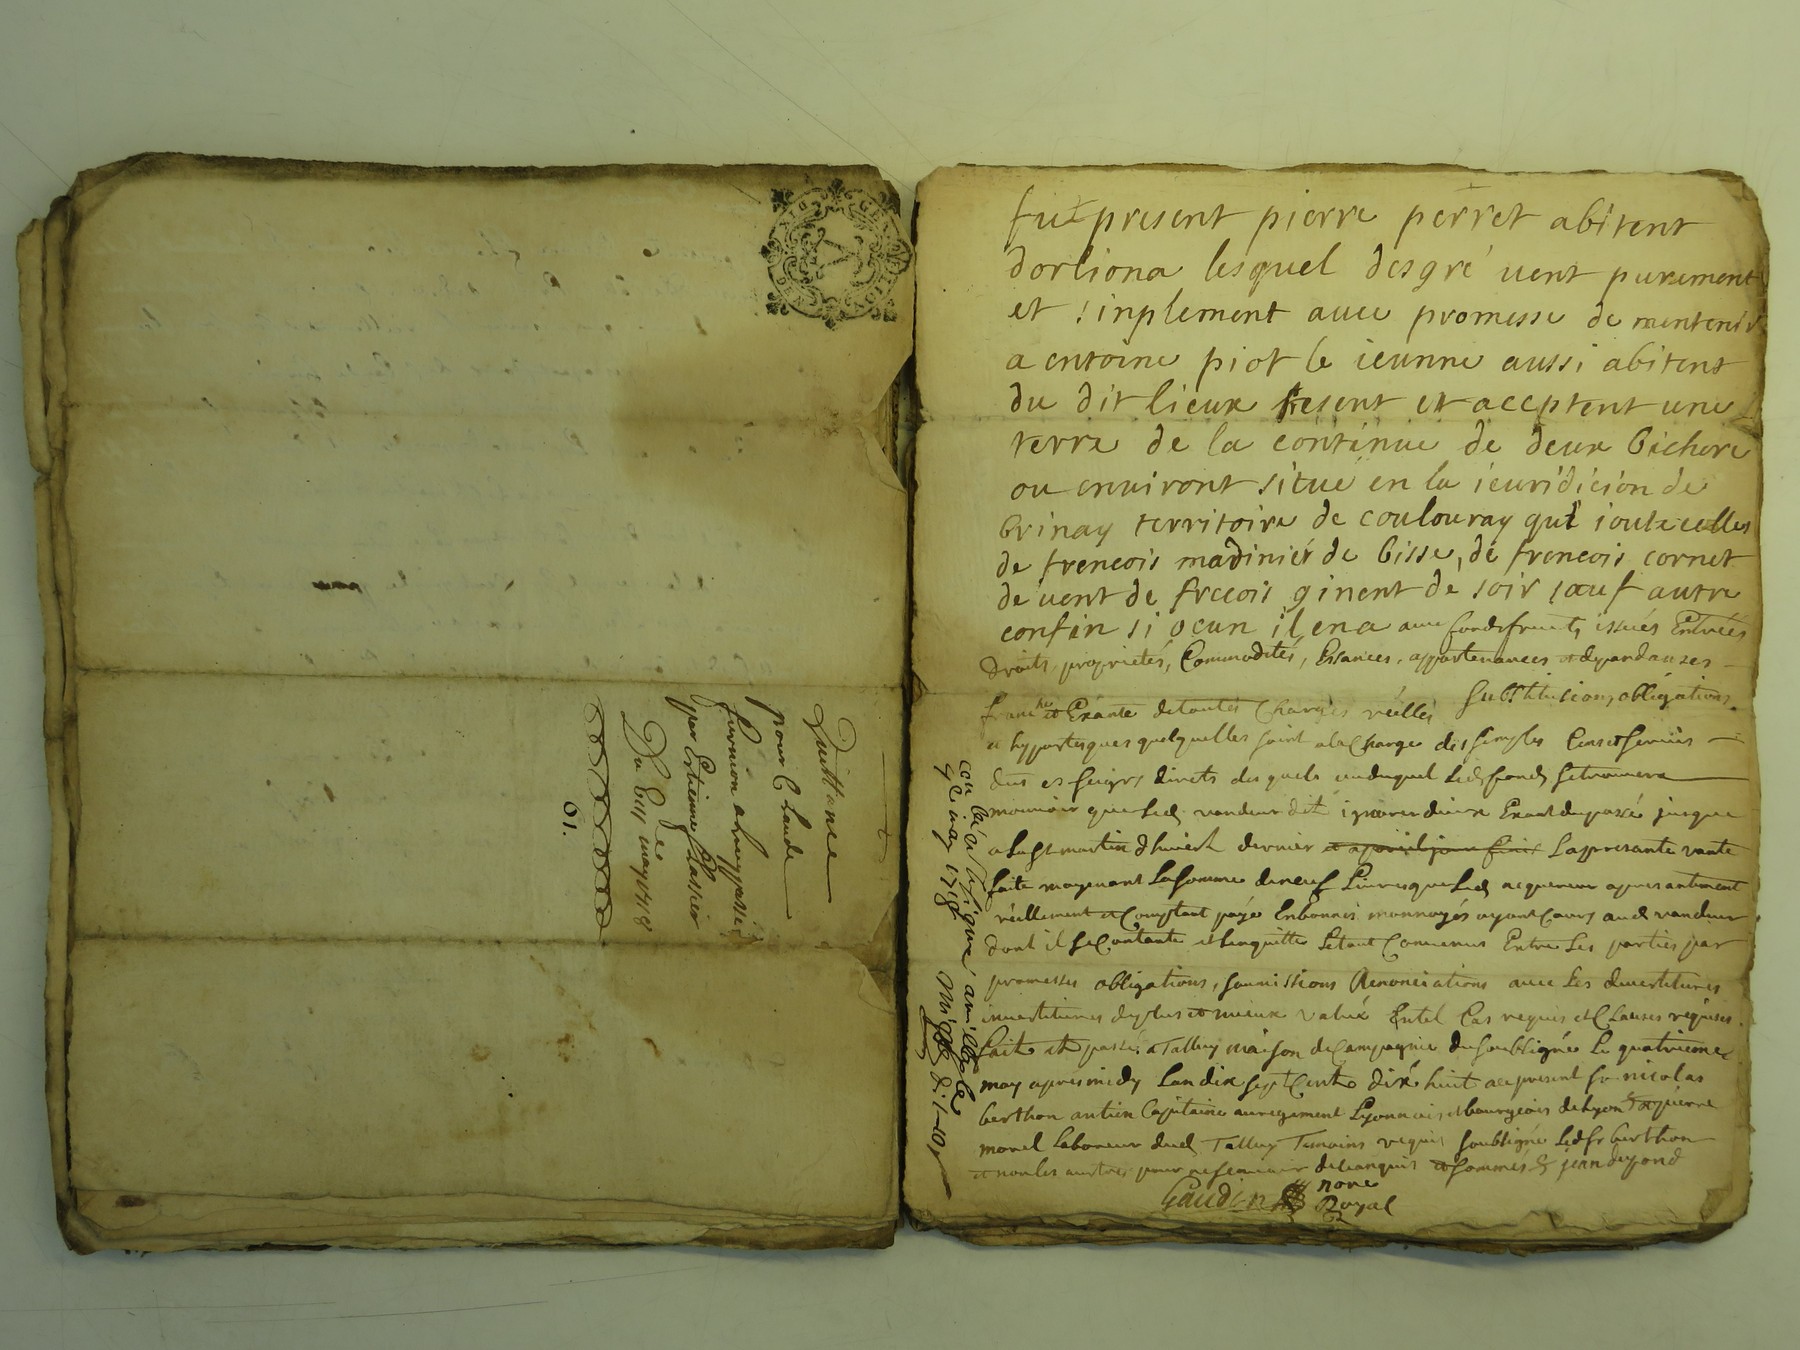 Quittance
pour Claude
furnion a luy passée
par Estienne Plassier
Du Ell may 1718
61.
fut present pierre perret abitent
dorliona lesquel desgré vent purement
et sinplement avec promesse de mentenir
a entoine piot le ieunne aussi abitent
du dit lieux present et acceptent une
terre de la continue de deux bichere
ou environt situé en la ieuridicion de
brinay territoire de coulouray qui ioute celles
de frencois madinier de bisse, de frencois cornet
de vent de frecois ginent de soir sauf autre
confin si ocun il en a avec fonds fruits issües Entrées
droits, proprietés, Commodités, Essances, appartenances et depandanses
franche et Exante de toutes Charges réelles substitucions, obligations
a hyppoteques quelquelles soint a la Charge des simples Cens et servis
dus es seigrs directs des quels ou duquel led. fonds se trouvera
mouvoir que led. vandeur dit ignorer dieux Exant du passé jusque
a la st martin d'hivert dernier la presante vante
faite moyenant la somme de neuf Livres que led. acquereur a presantement
réellement et Comptant payé En bonnes monnoyes ayant Cours aud. vandeur
dont il se Contante et lenquitte Letout Convenus Entre les parties par
promesses obligations, soumissions Renonciations avec les devertitures
investitures de plus et mieux value Entel Cas requis et Clauses réquises.
fait et passé a Talluy maison de Campagnie du soubligné Le quatrieme
may apres midy Lan dix sept Cents dix huit ace present sr nicolas
berthon antien Capitaine au regiment Lyonnois et bourgeois de Lyon et pierre
morel Laboureur dud. Talluy Temoins requis soubligné led sr berthon
et non les autres pour ne scavoir de ce enquis et sommés
Gaudin nore
Royal
4e may 1718